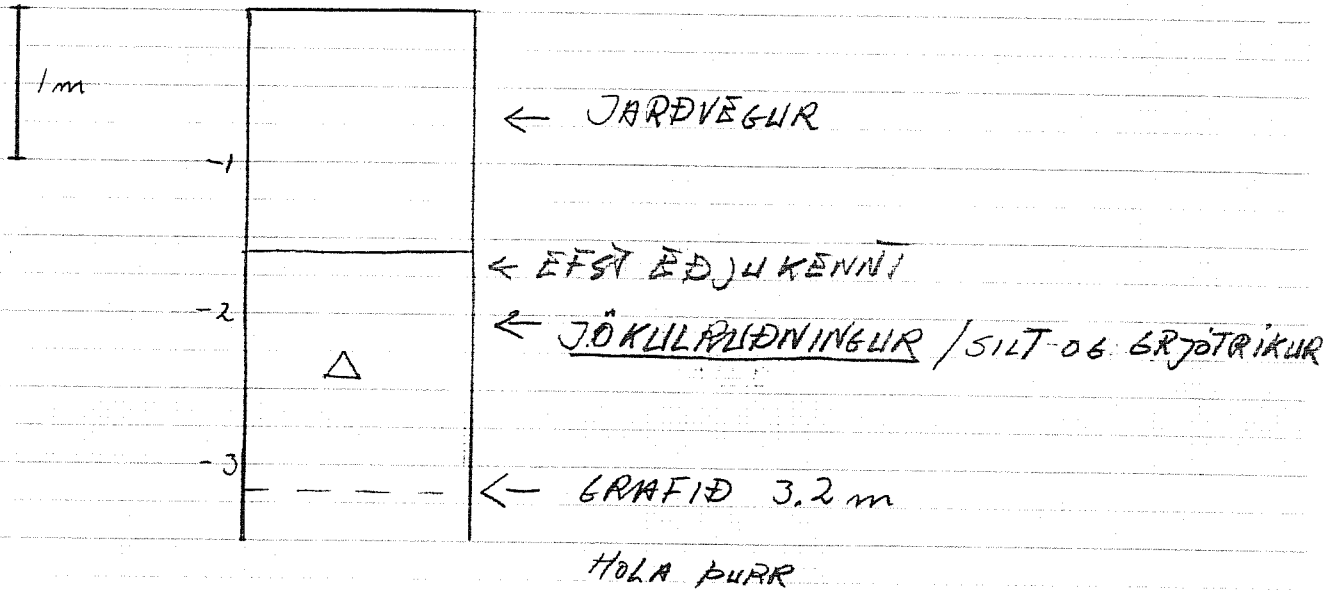 1m
← JARÐVEGUR
-1
← EFST EÐJUKENNT
-2
← JÖKULRUÐNINGUR / SILT-OG GRJÓTRÍKUR
△
-3
← GRAFIÐ 3.2 m
HOLA ÞURR